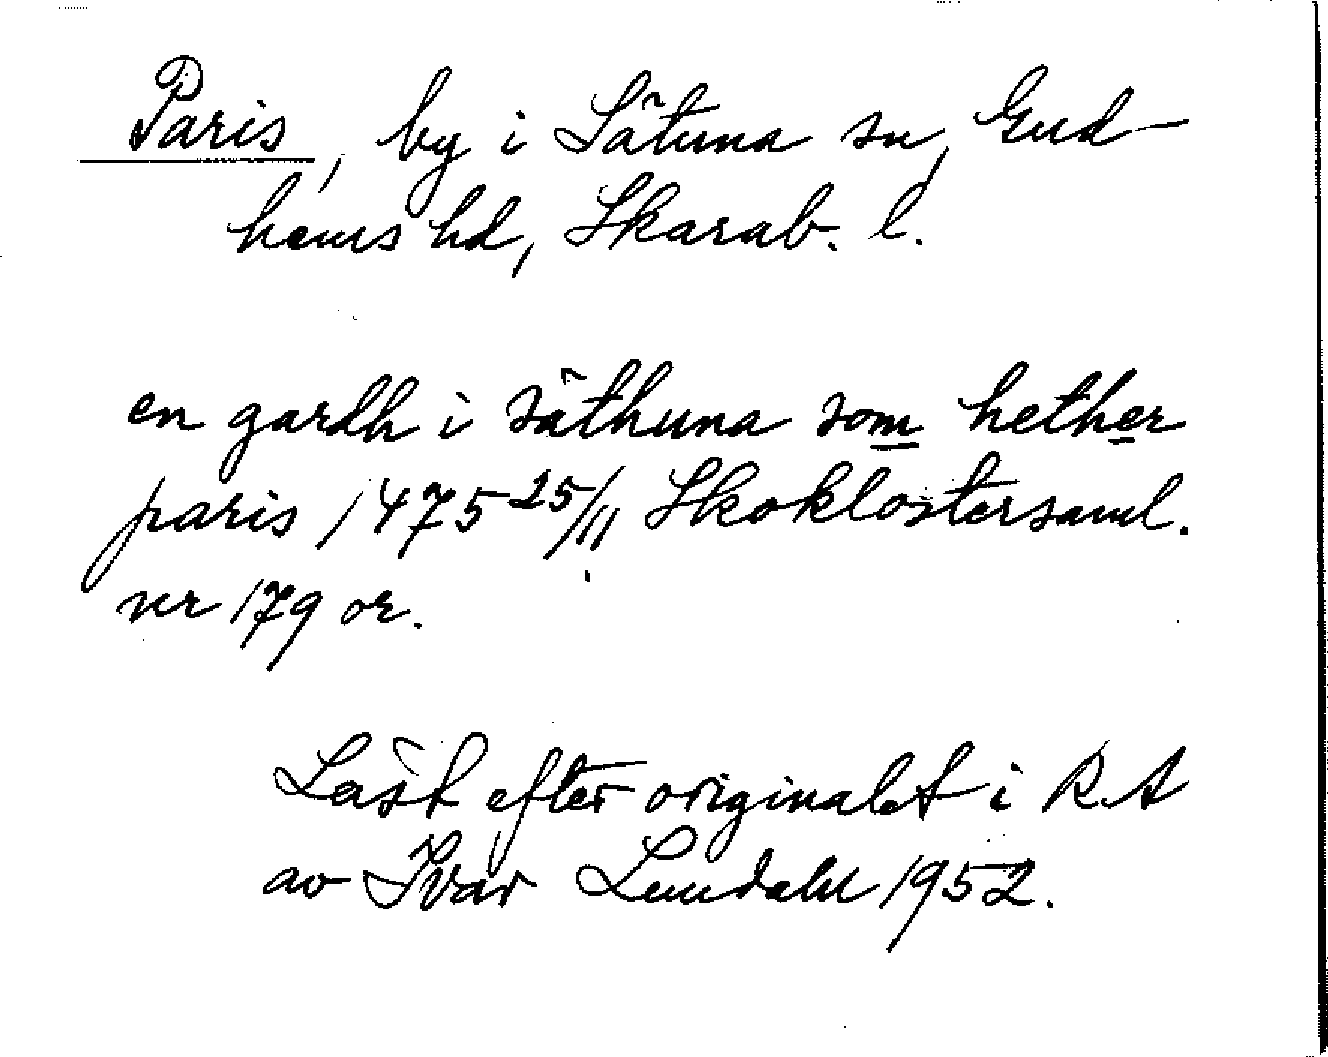 Paris, by i Sätuna sn, Gud-
hems hd, Skarab. l.
en gardh i säthuna som hether
paris 1475 25/11 Skoklostersaml.
nr 179 or.
Läst efter originalet i RA
av Ivar Lundahl 1952.